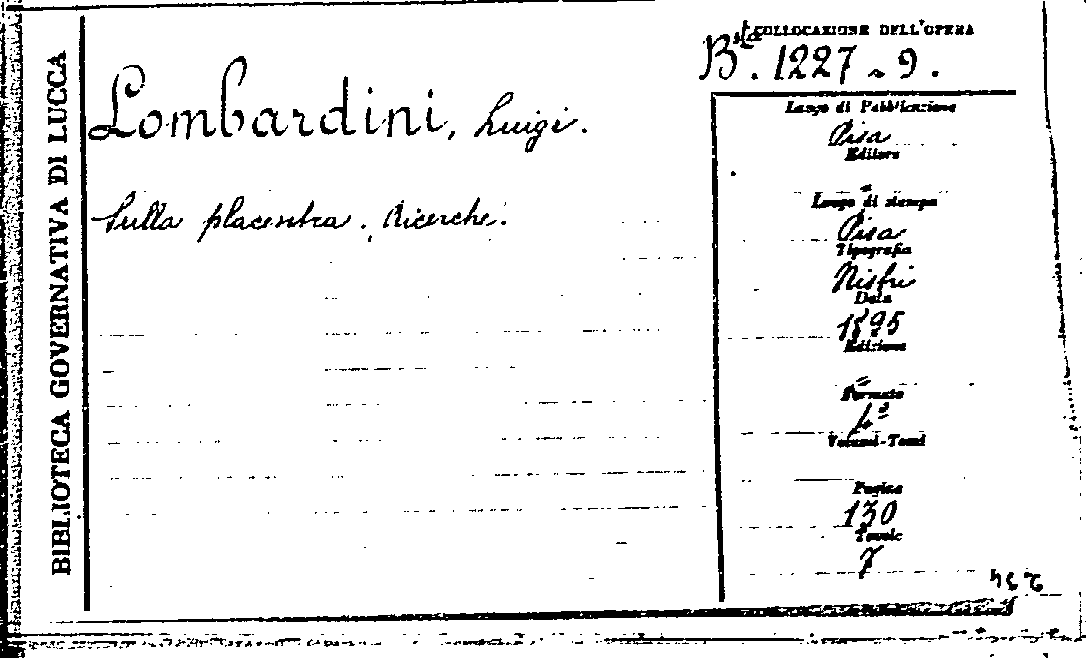 BIBLIOTECA GOVERNATIVA DI LUCCA
COLLOCAZIONE DELL'OPERA
Bta. 1227 - 9.
Lombardini, Luigi.
Sulla placenta. Ricerche.
Luogo di Pubblicazione
Pisa
Editore
"
Luogo di stampa
Pisa
Tipografia
Nistri
Data
1895
Edizione
"
Formato
4º
Volumi-Tomi
Pagine
130
Tavole
7